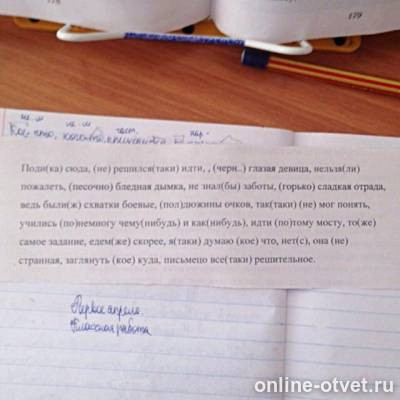 178
179
мест. мест. част. нар.
Кое что, кого-то,
Поди(ка) сюда, (не) решился(таки) идти, , (черн..) глазая девица, нельзя(ли)
пожалеть, (песочно) бледная дымка, не знал(бы) заботы, (горько) сладкая отрада,
ведь были(ж) схватки боевые, (пол)дюжины очков, так(таки) (не) мог понять,
учились (по)немногу чему(нибудь) и как(нибудь), идти (по)тому мосту, то(же)
самое задание, едем(же) скорее, я(таки) думаю (кое) что, нет(с), она (не)
странная, заглянуть (кое) куда, письмецо все(таки) решительное.
Первое апреля.
Классная работа
online-otvet.ru